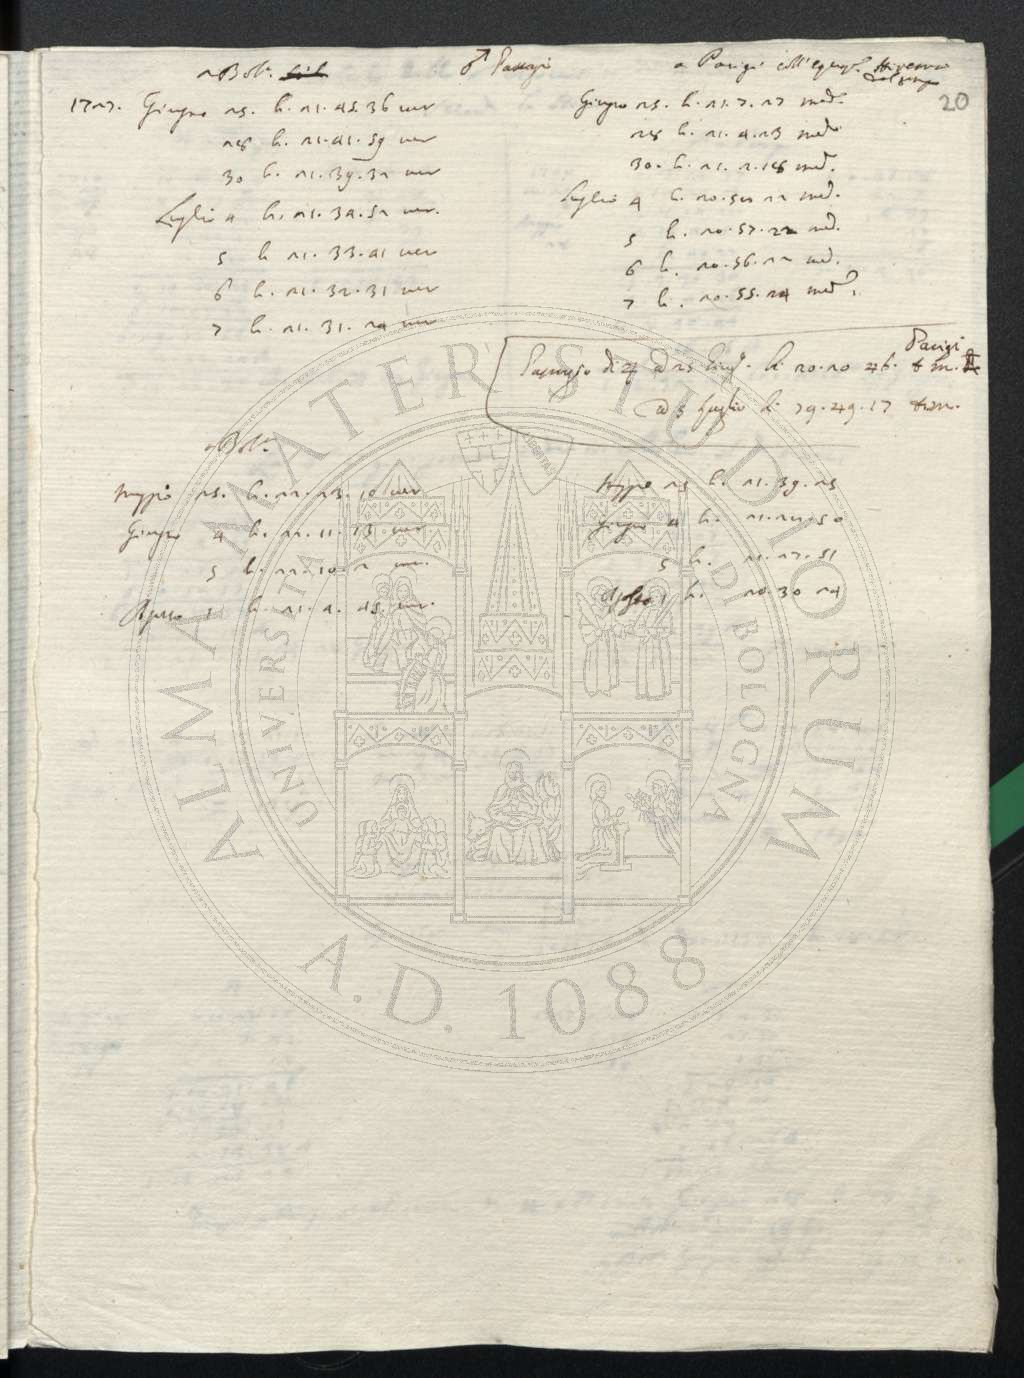 a Bol.ª ♂ Passagi a Parigi coll'equaz.
20
1727. Giugno 25. h. 21.45.36 ver Giugno 25. h. 21.7.27 med.
28 h. 21.41.59 ver 28 h. 21.4.23 med.
30 h. 21.39.32 ver 30. h. 21.2.18 med.
Luglio 4 h. 21.34.52 ver. Luglio 4 h. 20.58 22 med.
5 h 21.33.41 ver 5 h. 20.57.22 med.
6 h. 21.32.31 ver 6 h. 20.56.22 med.
7 h. 21.31.24 ver 7 h. 20.55.24 med.
Parigi
Passaggio di ♃ a dì 25 Giug. h. 20.20 46. t. m.
a dì 5 Luglio h. 19.49.17 t.m.
a Bol.ª
Maggio 25. h. 22.23.10 ver Maggio 25 h. 21.39.25
Giugno 4 h. 22.11.13 ver giugno 4 h. 21.28.50
5 h. 22.10.2 ver. 5 h. 21.27.51
Agosto 1 h. 21.4.45 ver. Agosto 1 h. 20.30 24
ALMA MATER STUDIORUM
UNIVERSITÀ DI BOLOGNA
A.D. 1088